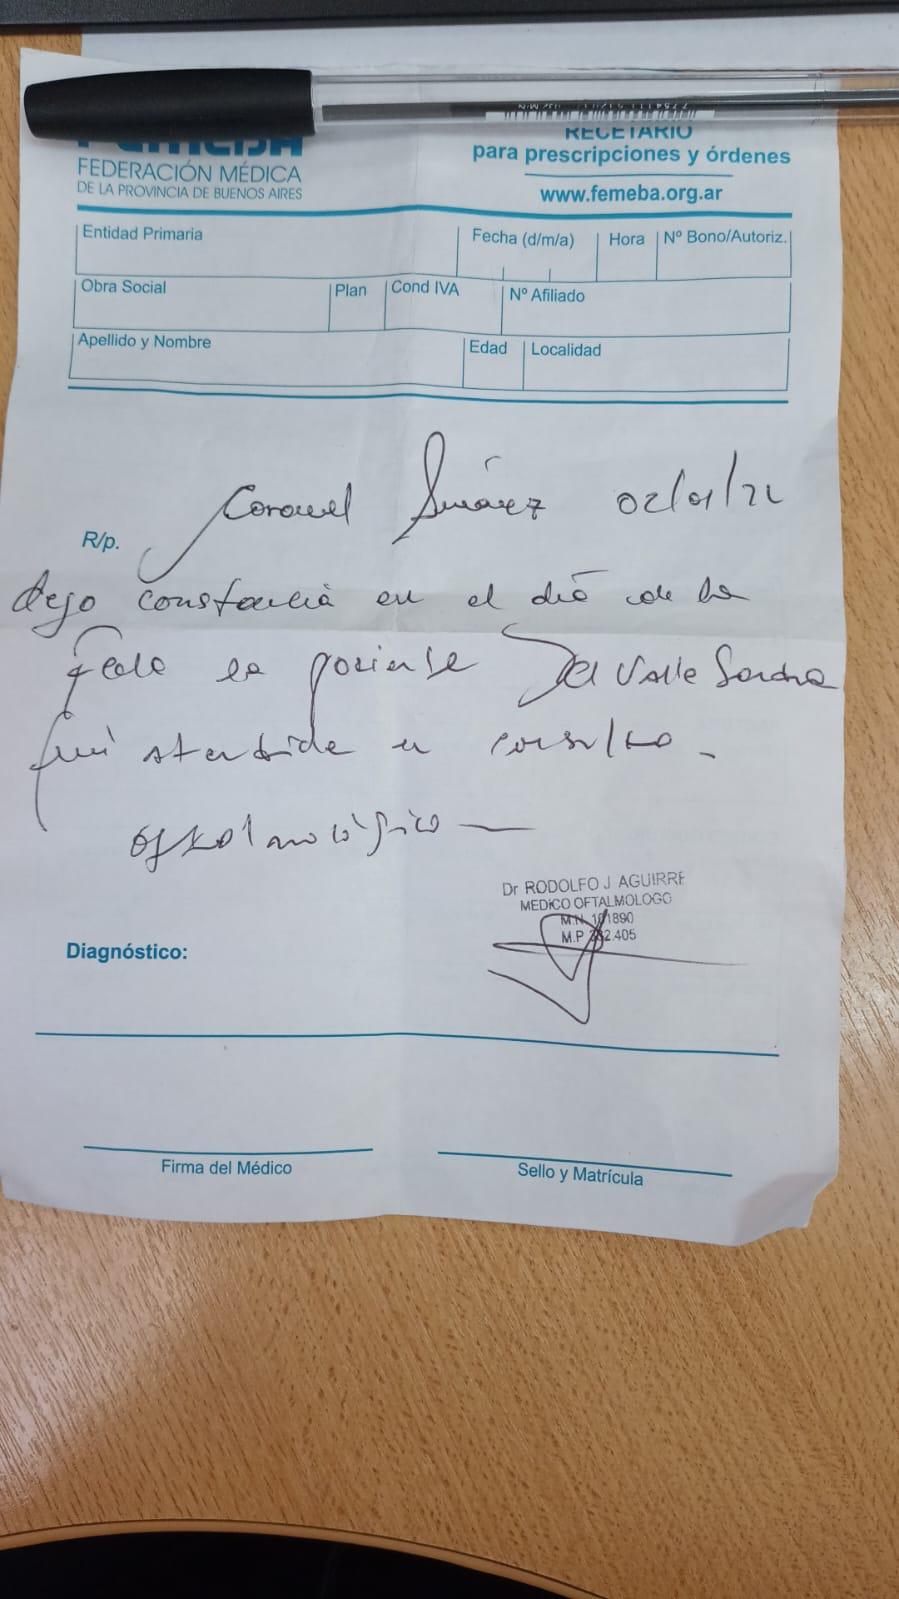 FEMEBA
FEDERACIÓN MÉDICA
DE LA PROVINCIA DE BUENOS AIRES
RECETARIO
para prescripciones y órdenes
www.femeba.org.ar
Entidad Primaria
Fecha (d/m/a)
Hora
Nº Bono/Autoriz.
Obra Social
Plan
Cond IVA
Nº Afiliado
Apellido y Nombre
Edad
Localidad
Coronel Suárez 02/01/
R/p.
dejo constancia en el día de la
fecha la paciente Del Valle Sandra
fué atendida en consulta
oftalmológico
Dr RODOLFO J AGUIRRE
MEDICO OFTALMOLOGO
M.N. 101890
M.P 332.405
Diagnóstico:
Firma del Médico
Sello y Matrícula